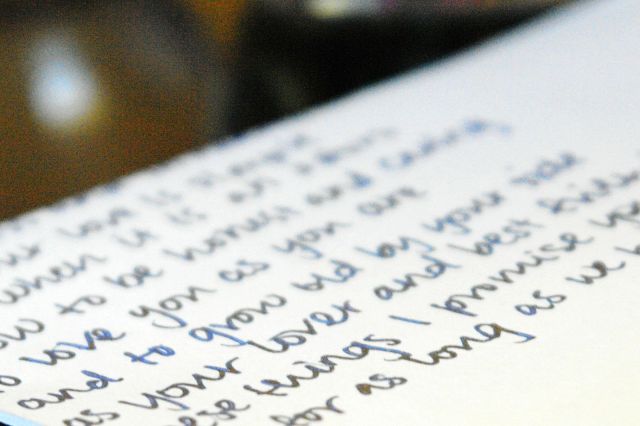 love is simple
when it is an
to be honest and caring,
to love you as you are
and to grow old by your side
as your lover and best
these things I promise you
for as long as we